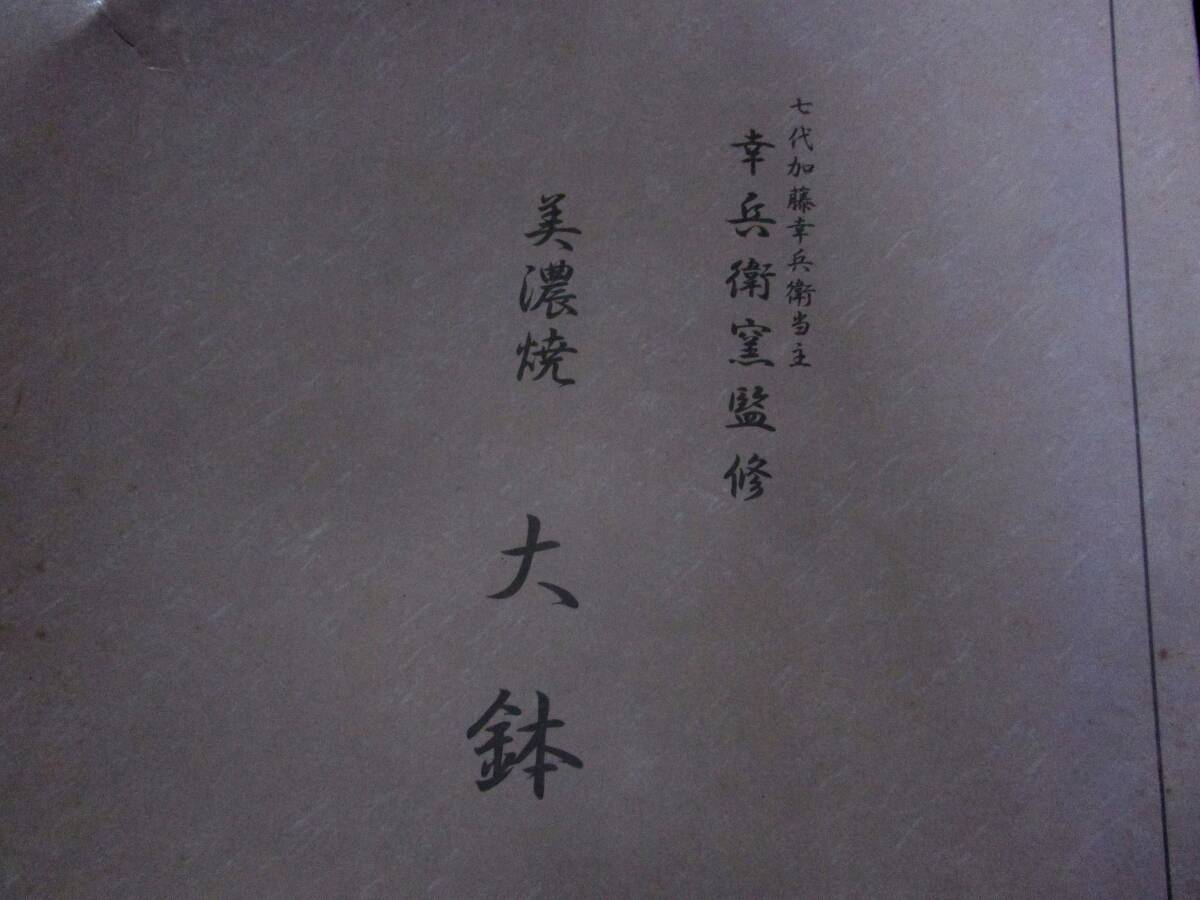 七代加藤幸兵衛当主
幸兵衛窯監修
美濃焼 大鉢